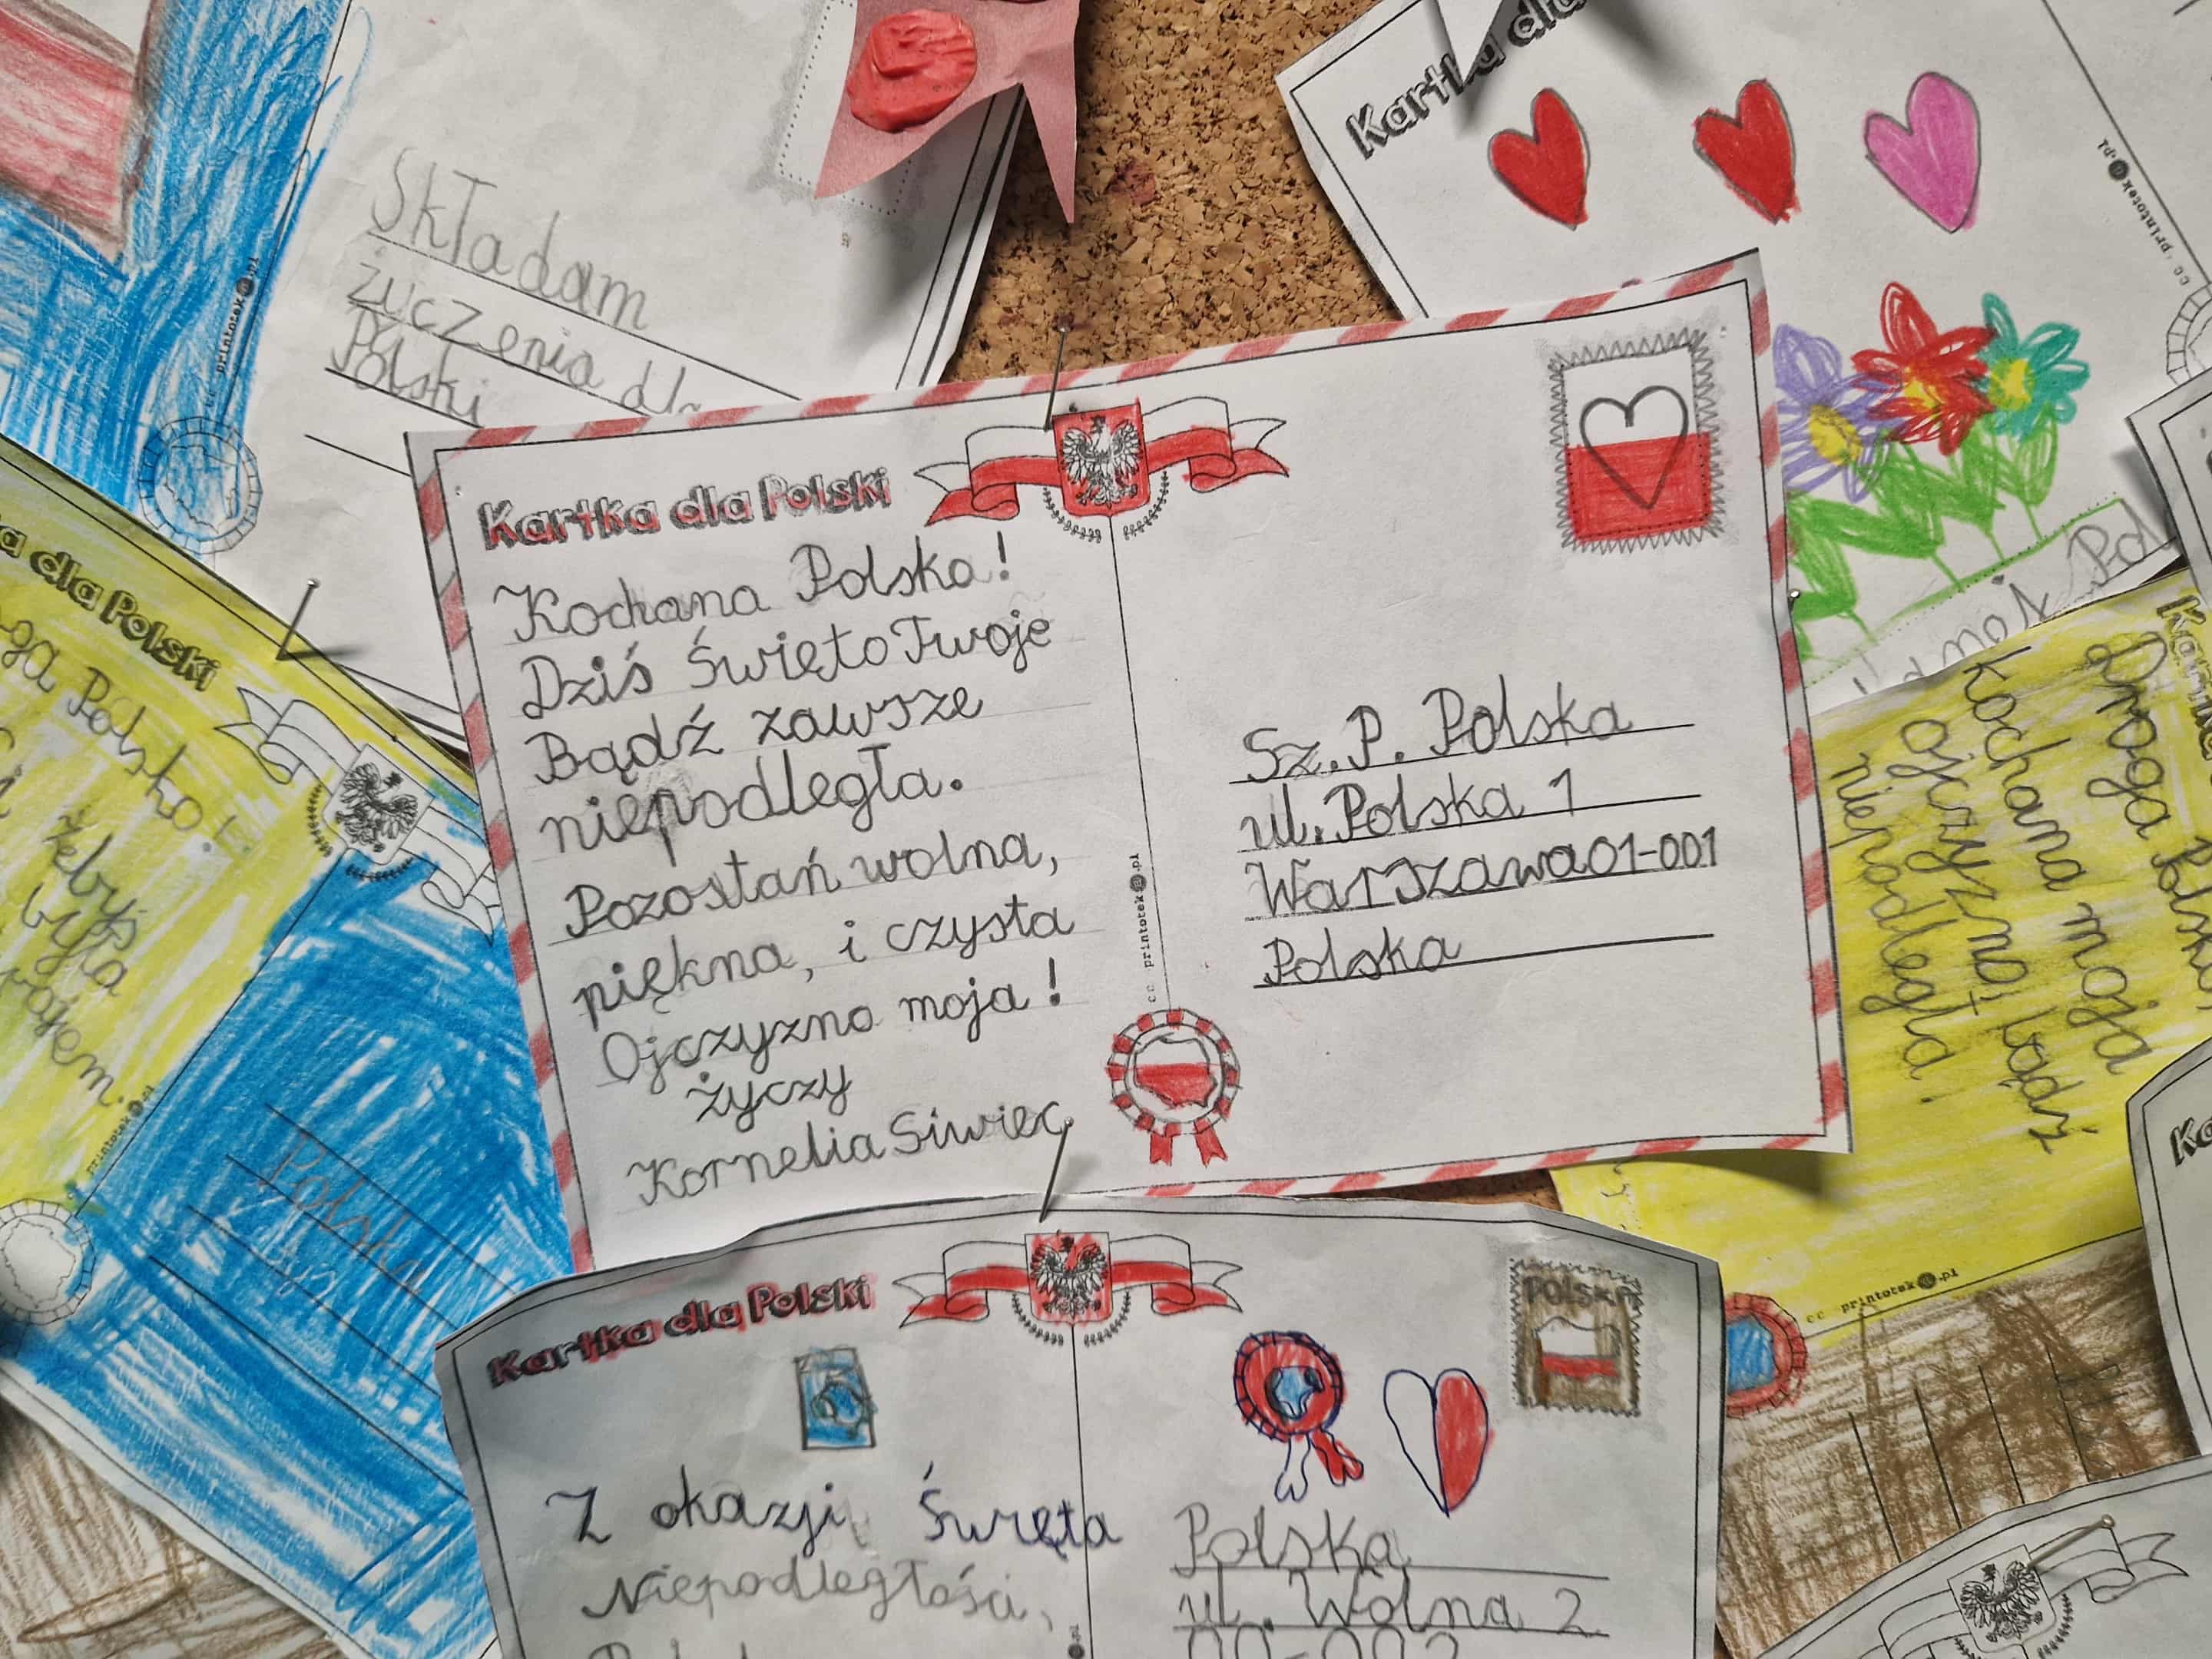 Składam
życzenia dl
Polski
printotek.pl
Kartka dla
cc printotek.pl
Pol
a dla Polski
ga Polsko!
żebyś
była
printotek.pl
Polska
Kartka dla Polski
Kochana Polsko!
Dziś Święto Twoje
Bądź zawsze
niepodległa.
Pozostań wolna,
piękna, i czysta
Ojczyzno moja!
życzy
Kornelia Siwiec
cc printotek.pl
Sz. P. Polska
ul. Polska 1
Warszawa 01-001
Polska
Droga Polsko
Kochana moja
ojczyzno, bądź
niepodległa.
cc printotek.pl
Kartka dla Polski
Polska
Z okazji Święta
Niepodległości,
.pl
Polska
ul. Wolna 2
00-002